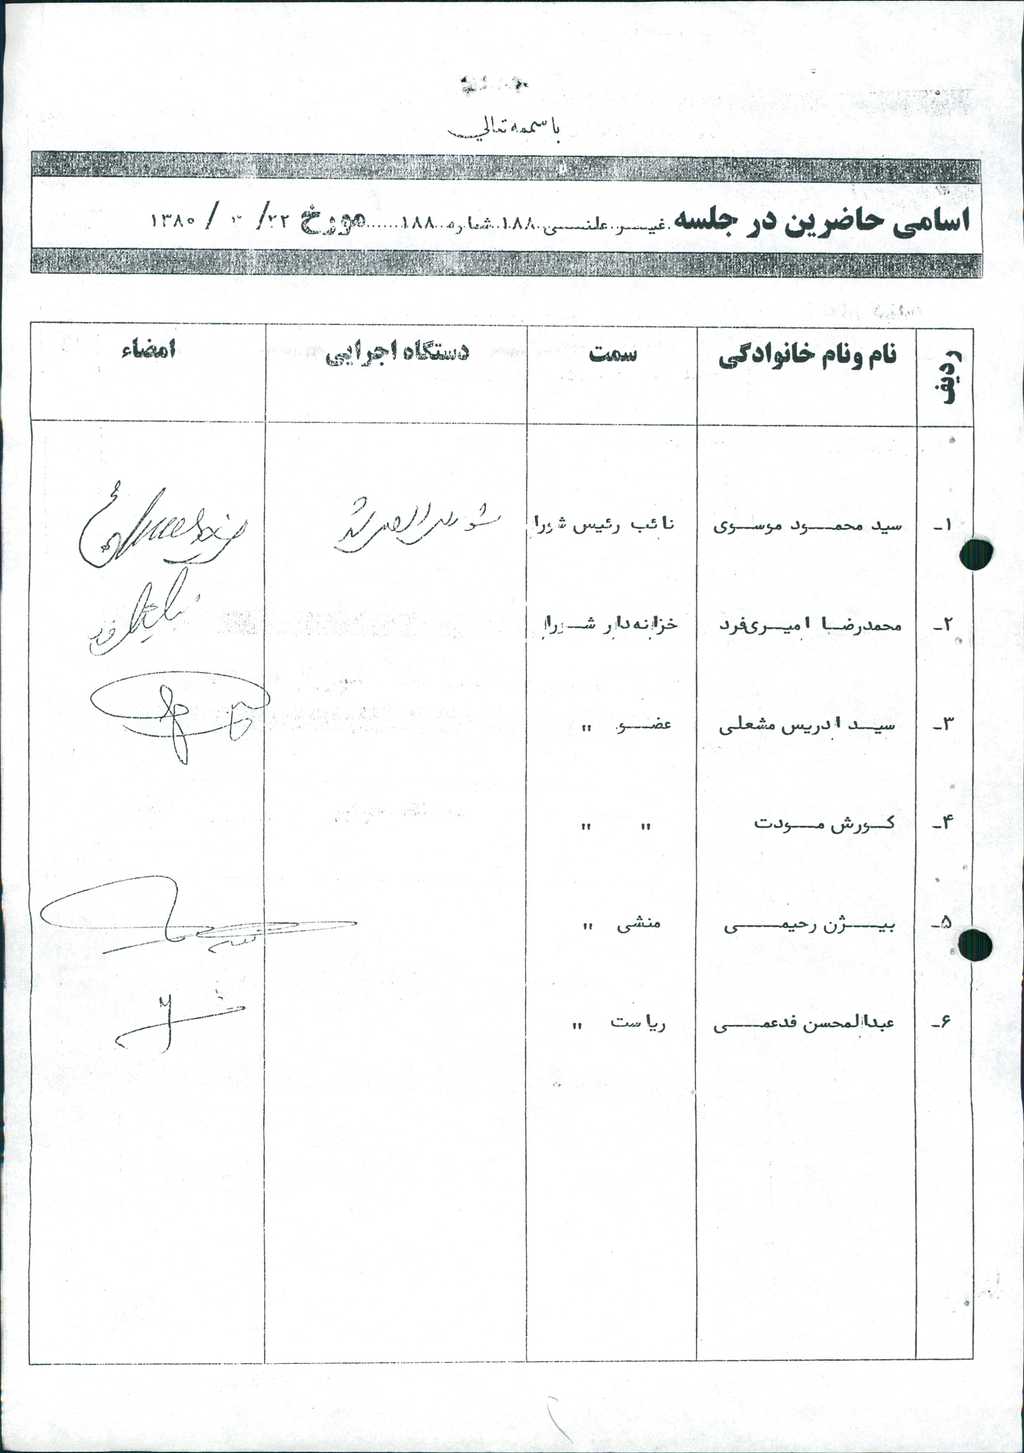 باسمه تعالی
اسامی حاضرین در جلسه .غیـــر. علنـــی.۱۸۸.شماره..۱۸۸....... مورخ ۲۲/ / ۱۳۸۰
ردیف نام ونام خانوادگی سمت دستگاه اجرایی امضاء
۱ـ سید محمـــود موســوی نائب رئیس شورا شورای اسلامی شهر
۲ـ محمدرضــا امیــری‌فرد خزانه‌دار شــورا
۳ـ سیــد ادریس مشعلی عضــو "
۴ـ کــورش مــودت " "
۵ـ بیـــژن رحیمـــی منشی "
۶ـ عبدالمحسن قدعمـــی ریاست "